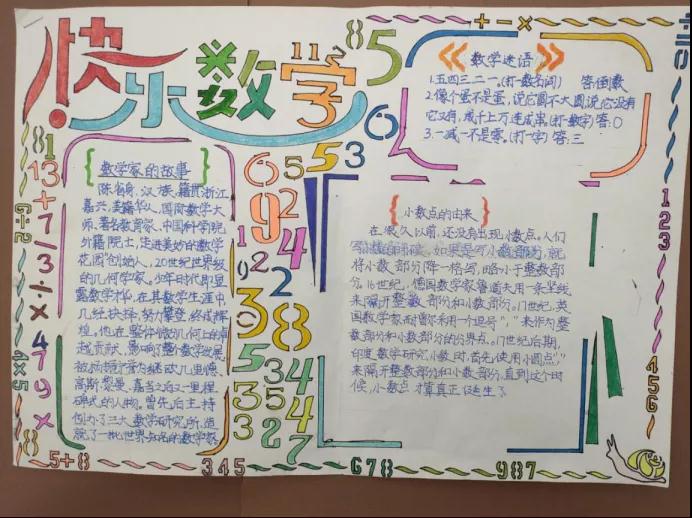 快乐数学
数学迷语
1.五四三二一。(打一数名词) 答:倒数
2.像个蛋不是蛋,说它圆不大圆,说它没有
它又有,成千上万连成串(打一数字)答:0
3.一减一不是零。(打一字)答:三
数学家的故事
陈省身,汉族,籍贯浙江
嘉兴,美籍华人,国际数学大
师、著名教育家、中国科学院
外籍院士,走进美妙的数学
花园创始人,20世纪世界级
的几何学家。少年时代即显
露数学才华,在其数学生涯中,
几经抉择,努力攀登,终成辉
煌。他在整体微分几何上的卓
越贡献,影响了整个数学发展,
被杨振宁誉为继欧几里德、
高斯、黎曼、嘉当之后又一里程
碑式的人物。曾先后主持
创办了三大数学研究所,造
就了一批世界知名的数学家。
小数点的由来
在很久以前,还没有出现小数点。人们
写小数的时候,如果是写小数部分,就
将小数部分降一格写,略小于整数部
分。16世纪,德国数学家鲁道夫用一条竖线
来隔开整数部分和小数部分。17世纪,英
国数学家耐普尔采用一个逗号","来作为整
数部分和小数部分的分界点。17世纪后期,
印度数学研究小数时,首先使用小圆点"."
来隔开整数部分和小数部分,直到这个时
候,小数点才算真正诞生了
11 2
8 5
6
6 5 5 3
9 2
4
1 9 2 2
3 8
5 3 4
3 5 4
3 2 7
+ - ×
1 2 3
4 5 6
8 1
13
+
7
1
3
÷
×
4
7
9
×
6÷2
4×5
8
5+8
3 4 5
6 7 8
9 8 7